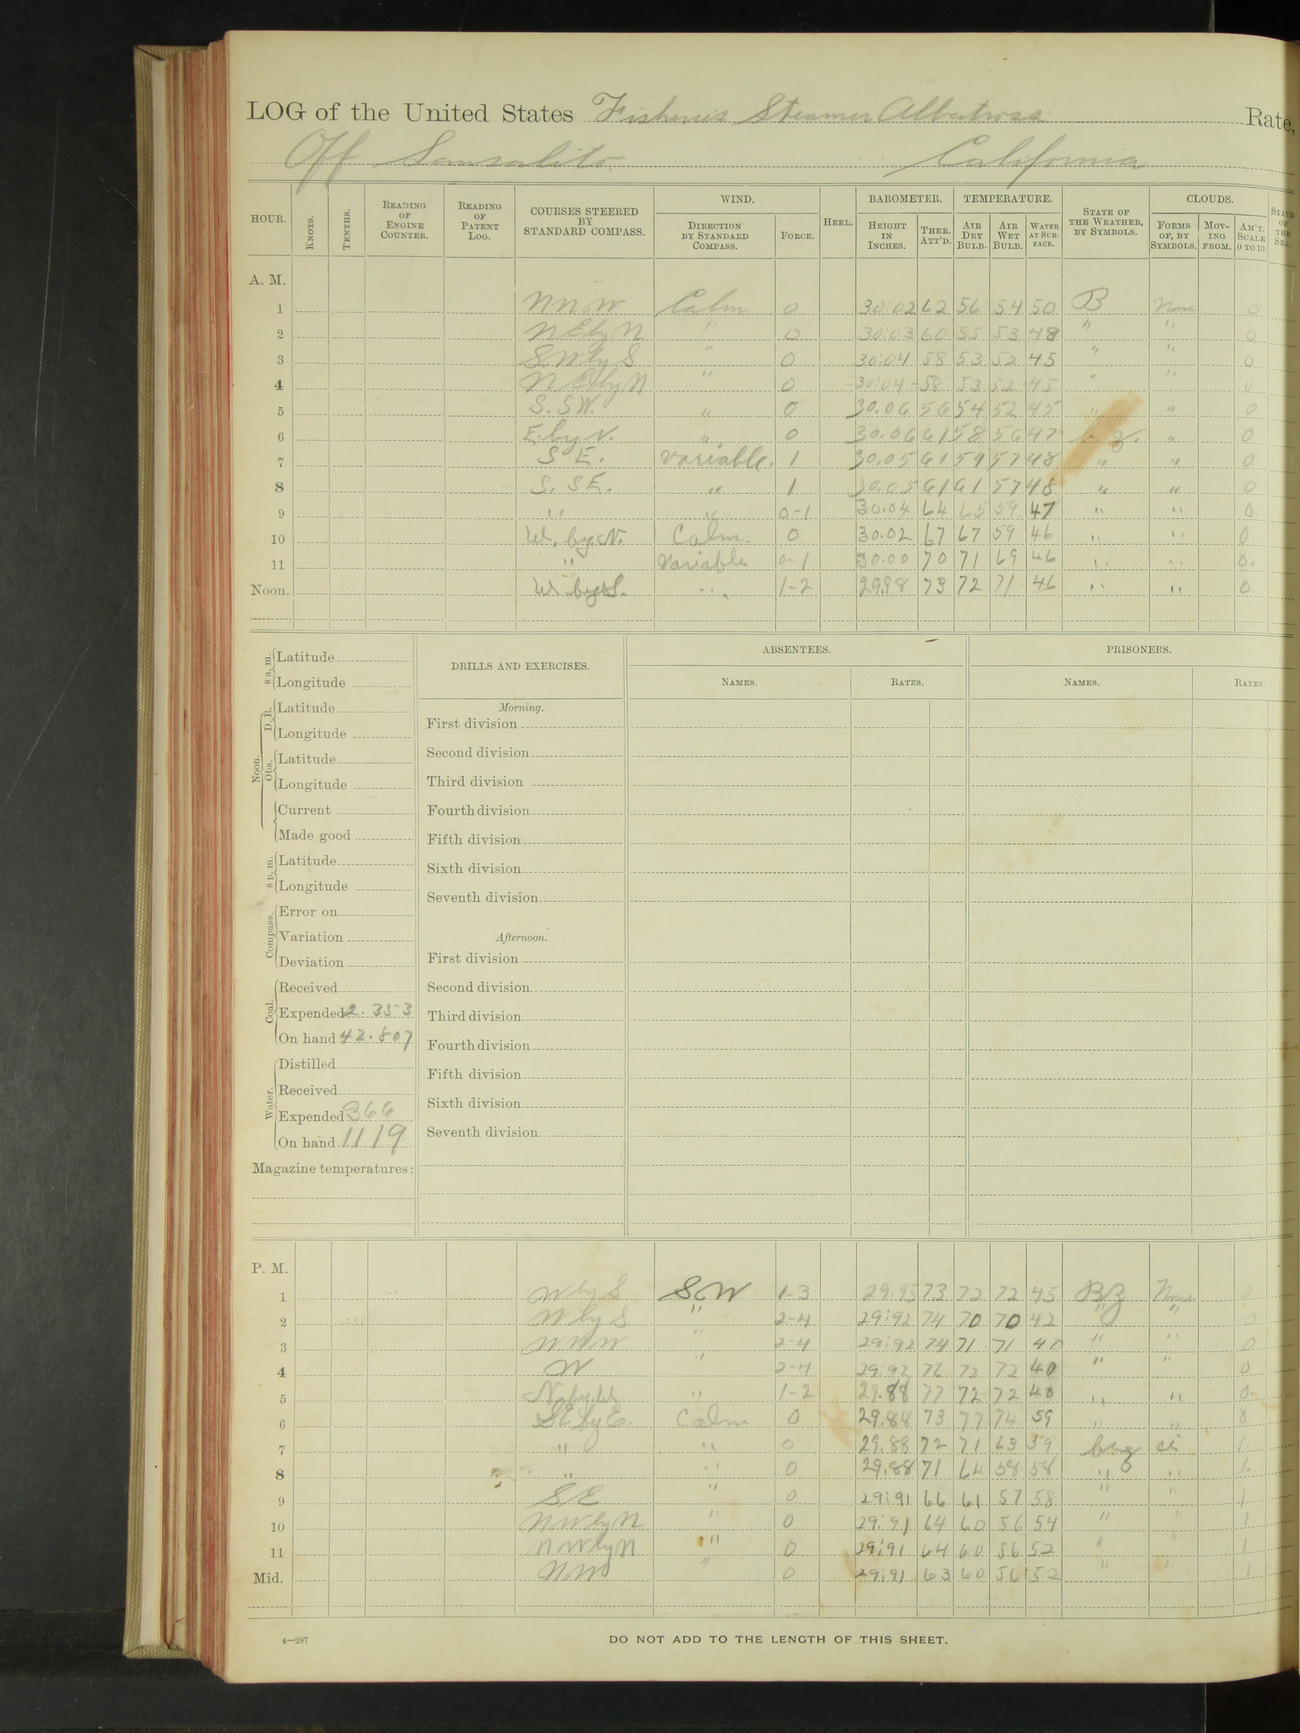 LOG of the United States Fisheries Steamer Albatross Rate,
Off Sausalito California
HOUR. KNOTS. TENTHS. READING OF ENGINE COUNTER. READING OF PATENT LOG. COURSES STEERED BY STANDARD COMPASS. WIND. DIRECTION BY STANDARD COMPASS. FORCE. HEEL. BAROMETER. HEIGHT IN INCHES. THER. ATT'D. TEMPERATURE. AIR DRY BULB. AIR WET BULB. WATER AT SURFACE. STATE OF THE WEATHER, BY SYMBOLS. CLOUDS. FORMS OF, BY SYMBOLS. MOVING FROM. AM'T. SCALE 0 TO 10. STATE OF THE SEA.
A. M.
1 NNW Calm 0 30:02 62 56 54 50 B None 0
2 NE by N " 0 30:03 60 55 53 48 " " 0
3 SW by S " 0 30:04 58 53 52 45 " " 0
4 NE by N " 0 30:04 58 53 52 45 " " 0
5 S. SW. " 0 30.06 56 54 52 45 " " 0
6 E. by N. " 0 30.06 61 58 56 47 b. z. " 0
7 S E. variable. 1 30.05 61 59 57 48 " " 0
8 S. SE. " 1 30.05 61 61 57 48 " " 0
9 " " 0-1 30.04 64 65 59 47 " " 0
10 W. by N. Calm 0 30.02 67 67 59 46 " " 0.
11 " Variable 0-1 30.00 70 71 69 46 " " 0.
Noon. W. by S. " 1-2 29.98 73 72 71 46 " " 0
8 a. m. Latitude
Longitude
Noon. D. R. Latitude
Longitude
Obs. Latitude
Longitude
Current
Made good
8 p. m. Latitude
Longitude
Compass. Error on
Variation
Deviation
Coal. Received
Expended 2.353
On hand 42.807
Water. Distilled
Received
Expended 366
On hand 1119
Magazine temperatures:
DRILLS AND EXERCISES.
Morning.
First division
Second division
Third division
Fourth division
Fifth division
Sixth division
Seventh division
Afternoon.
First division
Second division
Third division
Fourth division
Fifth division
Sixth division
Seventh division
ABSENTEES.
NAMES. RATES.
PRISONERS.
NAMES. RATES.
P. M.
1 W by S SW 1-3 29:95 73 72 72 45 BZ None 0
2 W by S " 2-4 29:92 74 70 70 42 " " 0
3 WNW " 2-4 29:92 74 71 71 40 " " 0
4 W " 2-4 29:92 76 72 72 40 " " 0
5 N. by W " 1-2 29.88 77 72 72 40 " " 0.
6 SE by E. Calm 0 29.84 73 77 74 59 " "
7 " " 0 29.88 72 71 63 59 bcz ci 1.
8 " " 0 29.88 71 64 58 58 " " 1.
9 SE " 0 29:91 66 61 57 58 " " 1
10 NW by N " 0 29:91 64 60 56 54 " " 1
11 NW by N " 0 29:91 64 60 56 52 " 1
Mid. NW " 0 29:91 63 60 56 52 " " 1
4—287 DO NOT ADD TO THE LENGTH OF THIS SHEET.